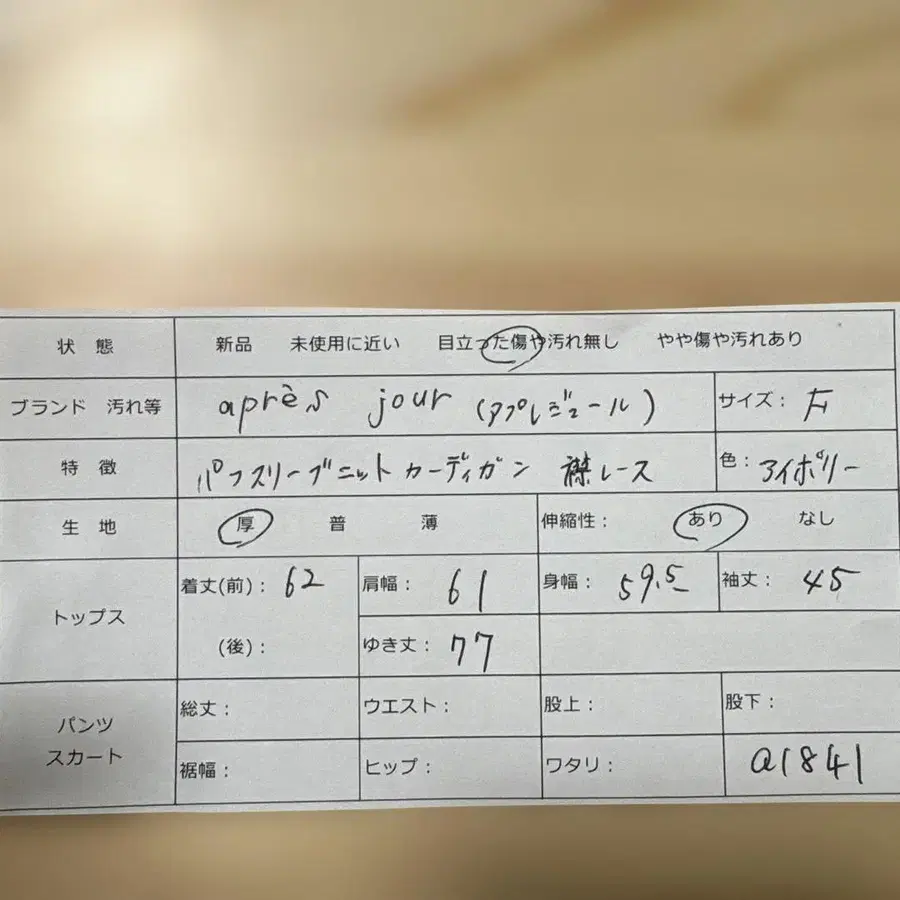 状 態 新品 未使用に近い 目立った傷や汚れ無し やや傷や汚れあり
ブランド 汚れ等 après jour (アプレジュール) サイズ:
特 徴 パフスリーブニットカーディガン 襟レース 色: アイボリー
生 地 厚 普 薄 伸縮性: あり なし
トップス 着丈(前): 62 肩幅: 61 身幅: 59.5 袖丈: 45
(後): ゆき丈: 77
パンツ スカート 総丈: ウエスト: 股上: 股下:
裾幅: ヒップ: ワタリ: a1841